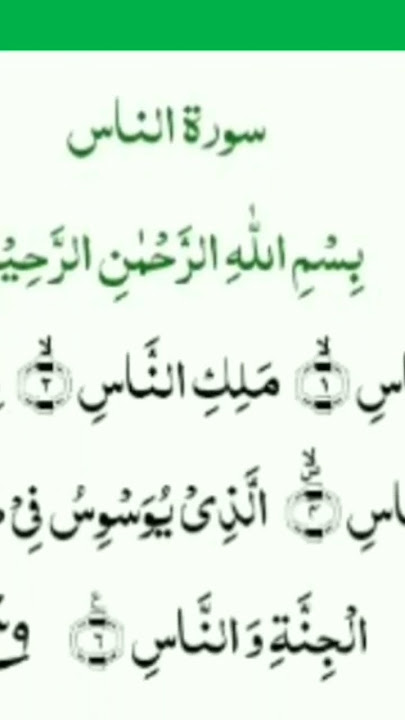 سورة الناس
بِسْمِ اللّٰهِ الرَّحْمٰنِ
اسِ ۙ﴿۱﴾ مَلِكِ النَّاسِ ۙ﴿۲﴾
اسِ ۙ﴿۴﴾ الَّذِیْ یُوَسْوِسُ فِیْ
الْجِنَّةِ وَ النَّاسِ ﴿۶﴾